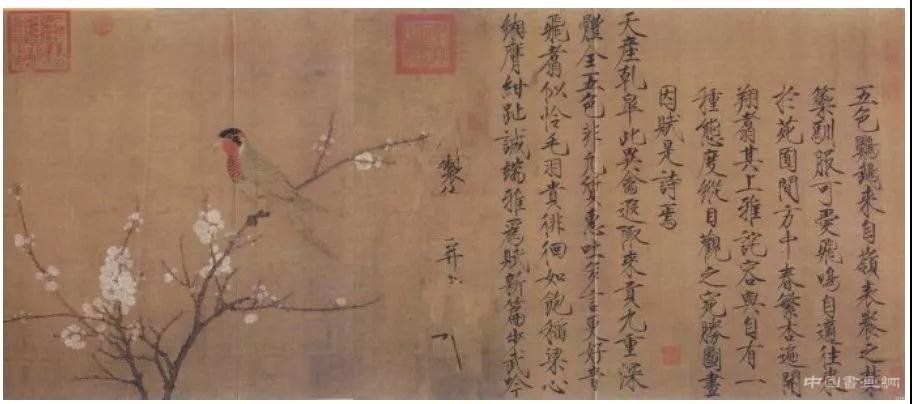 五色鸚鵡來自嶺表養之禁
籞馴服可愛飛鳴自適往來
於苑囿間方中春繁杏遍開
翔翥其上雅詫容與自有一
種態度縱目觀之宛勝圖畫
因賦是詩焉
天產乾皋此異禽遐陬來貢九重深
體全五色非凡質惠吐多言更好音
飛翥似憐毛羽貴徘徊如飽稻粱心
緗膺紺趾誠端雅為賦新篇步武吟
製
并
中国書画網